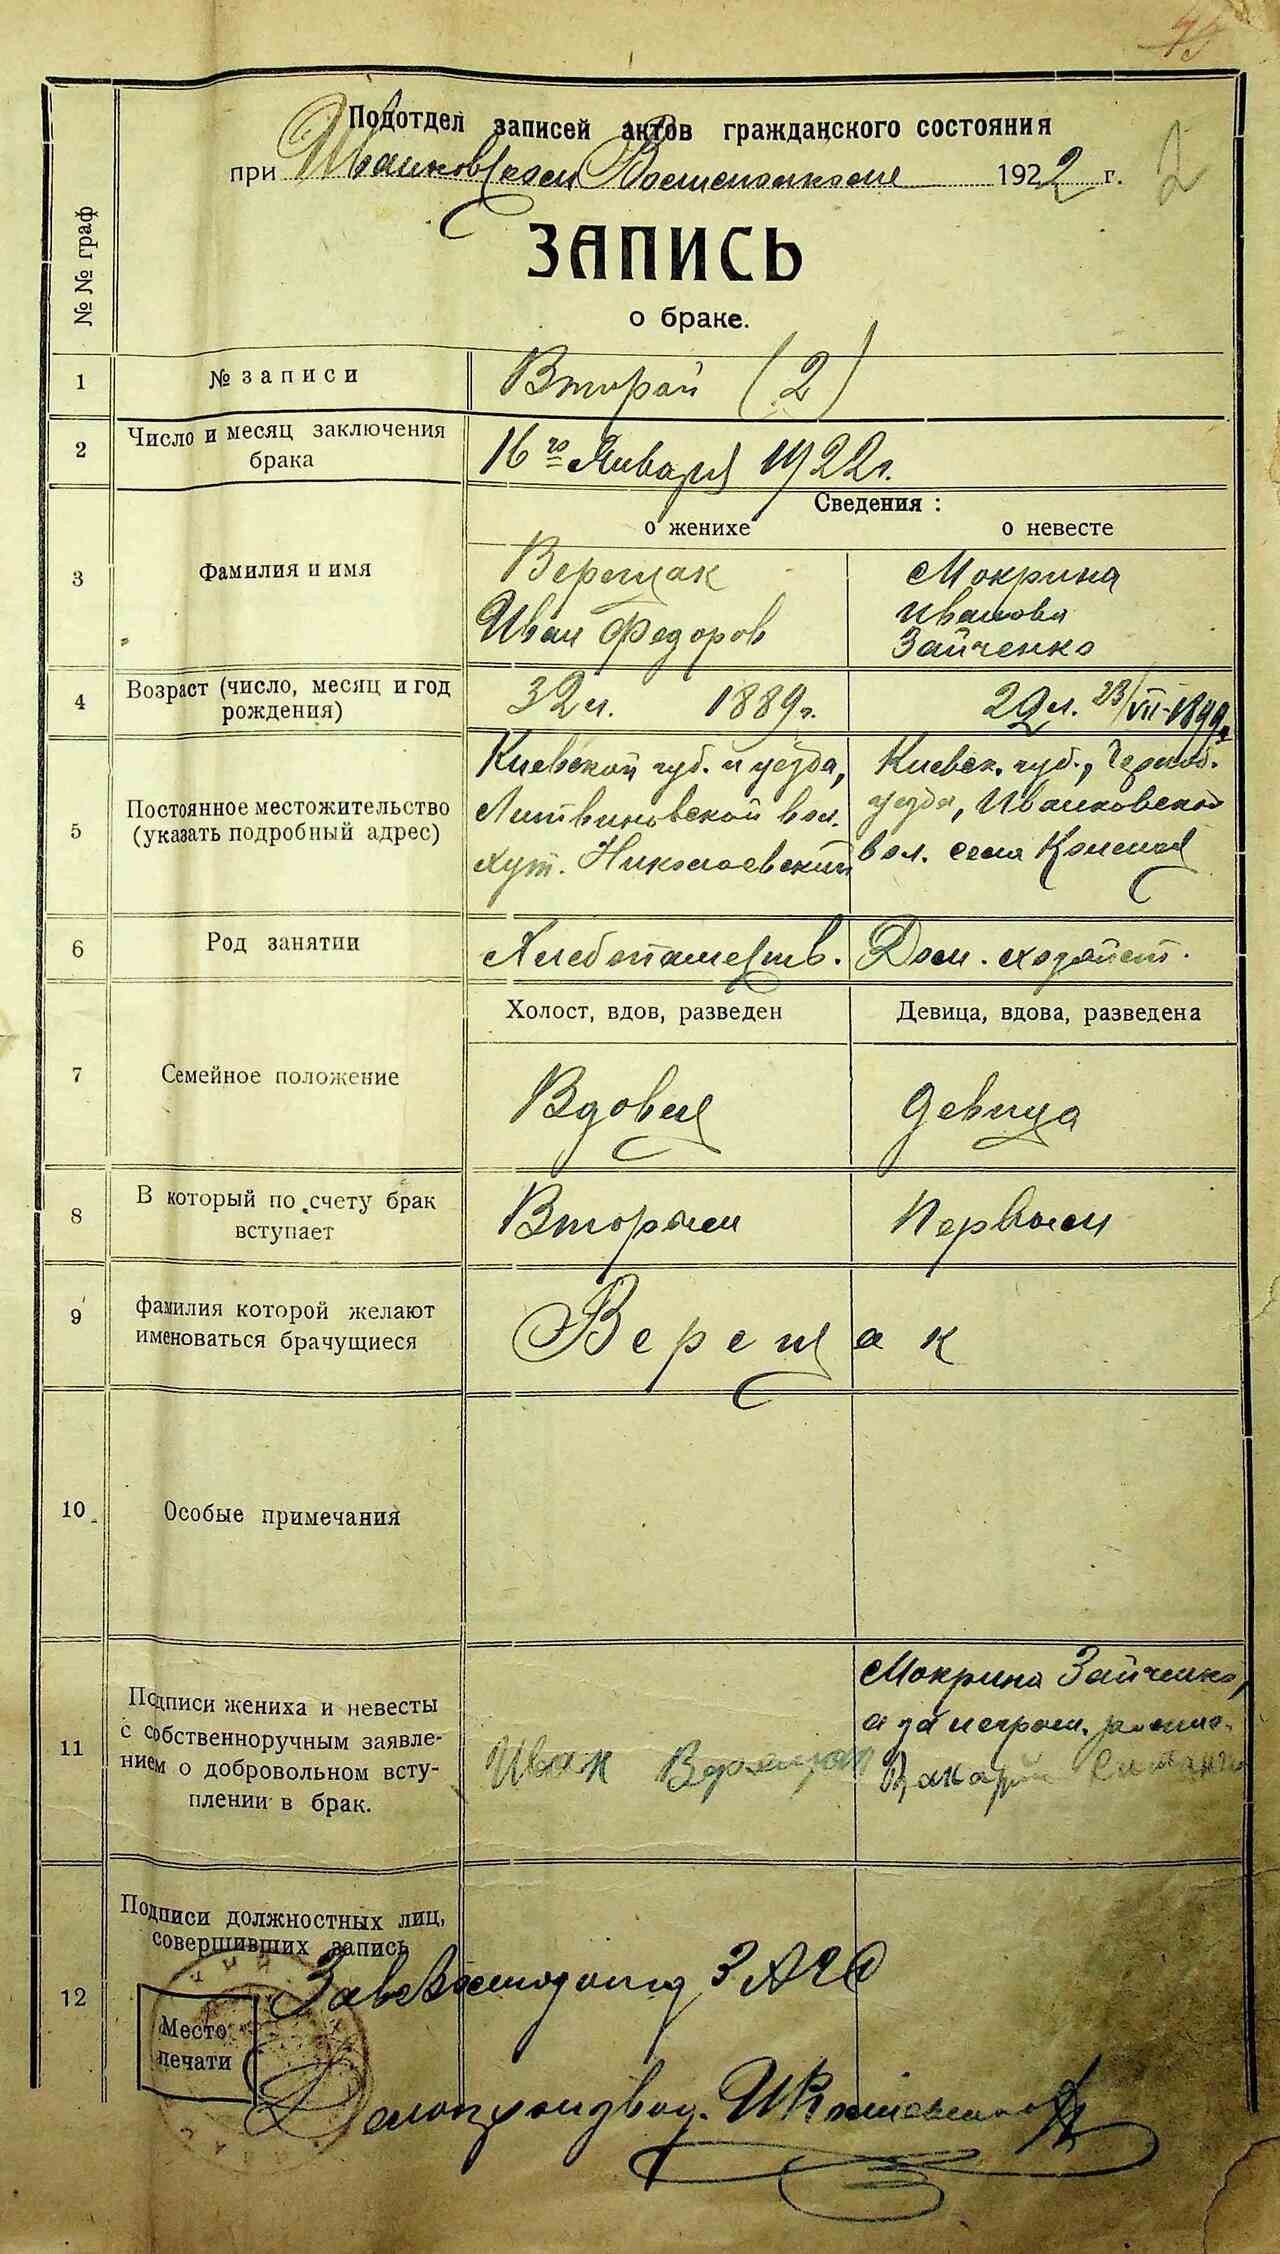 Подотдел записей актов гражданского состояния
при Иванковском Волисполкоме 1922 г.
2
ЗАПИСЬ
о браке.
№№ граф
1 № записи Второй (2)
2 Число и месяц заключения брака 16го Января 1922 г.
Сведения:
о женихе о невесте
3 Фамилия и имя
Верещак Мокрина
Иван Федоров Иванова
Зайченко
4 Возраст (число, месяц и год рождения) 32 л. 1889 г. 22 л. 23/VII-1899 г.
5 Постоянное местожительство (указать подробный адрес)
Киевской губ. и уезда, Киевск. губ., Черноб.
Литвиновской вол. уезда, Иванковской
хут. Николаевский вол. села
6 Род занятии Хлебопашеств. Дом. хозяйст.
Холост, вдов, разведен Девица, вдова, разведена
7 Семейное положение Вдовец девица
8 В который по счету брак вступает Вторым Первым
9 фамилия которой желают именоваться брачущиеся Верещак
10 Особые примечания
11 Подписи жениха и невесты с собственноручным заявлением о добровольном вступлении в брак.
Мокрина Зайченко,
а за неграм.
Иван Верещак
12 Подписи должностных лиц, совершивших запись
ЗАГС
Место печати